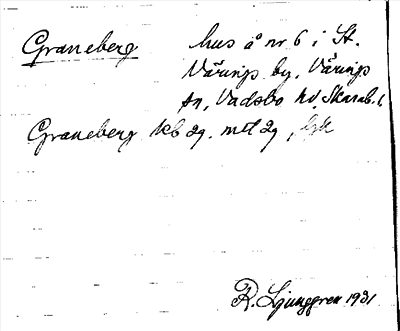 Graneberg hus å nr 6 i St.
Värings by, Värings
sn, Vadsbo hd, Skarab. l.
Graneberg kb 29. mtl 29,
R. Ljunggren 1931